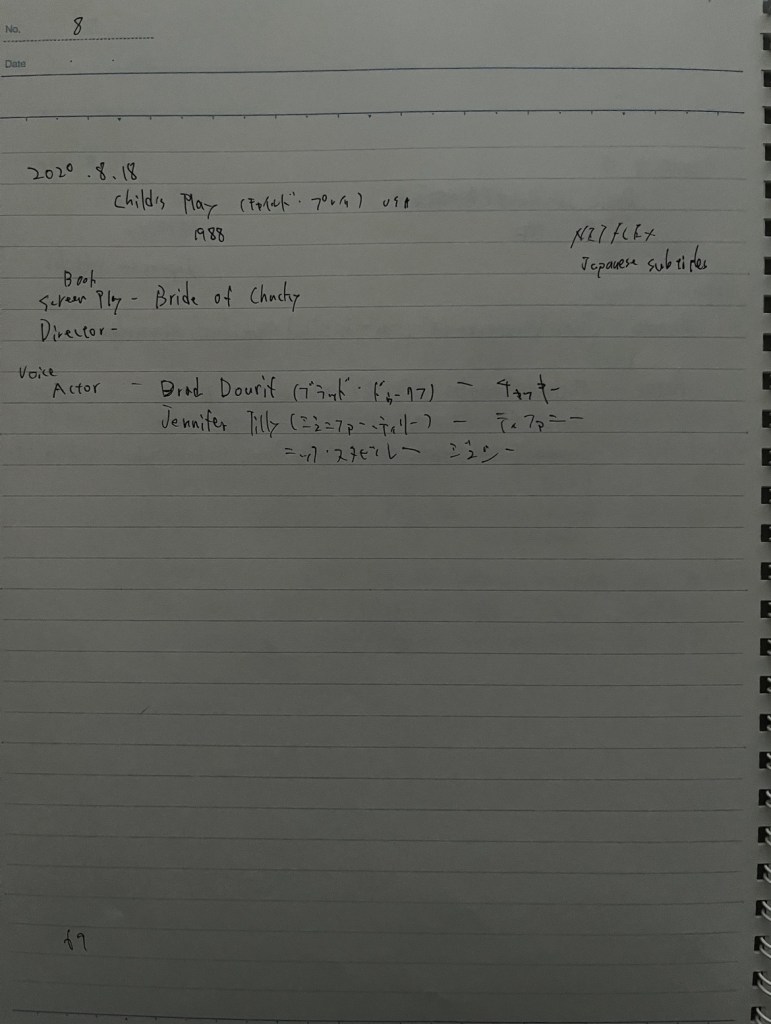 No. 8
Date . .
2020.8.18
Child's Play (チャイルド・プレイ) USA
1988
NETFLIX
Japanese subtitles
Book
Screen Play - Bride of Chucky
Director -
Voice
Actor - Brad Dourif (ブラッド・ドゥーリフ) - チャッキー
Jennifer Tilly (ジェニファー・ティリー) - ティファニー
ニック・スタビル -
69